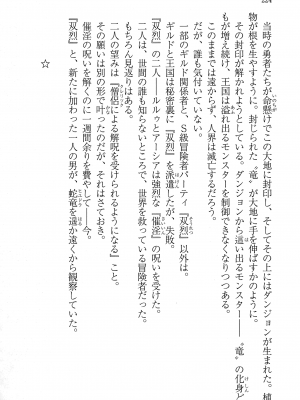 224
当時の勇者たちが命懸けでこの大地に封印し、そしてその上にはダンジョンが生まれた。植
物が根を生やすように。封じられた〝竜〟が大地に手を伸ばすかのように。
その封印が解かれようとしている。ダンジョンから這い出るモンスター――〝竜〟の化身ど
もが増え続け、王国は溢れ出るモンスターを制御できなくなりつつある。
このままでは遠からず、人界は滅亡するだろう。
だが、誰も気付いていない。
一部のギルド関係者と、S級冒険者パーティ『双烈』以外は。
ギルドと王国は秘密裏に『双烈』を派遣したが、失敗。
『双烈』の二人――ルルゥとアーシャは強烈な『催淫』の呪いを受けた。
二人は、世間の誰も知らないところで、世界を救っている冒険者だった。
もちろん見返りはある。
二人の望みは『僧侶による解呪を受けられるようになる』こと。
その願いは別の形で叶ったのだが、それはさておき。
催淫の呪いを解くのに一週間余りを費やして――今。
『双烈』と、新たに加わった一人の男が、蛇竜を遠か遠くから観察していた。
☆